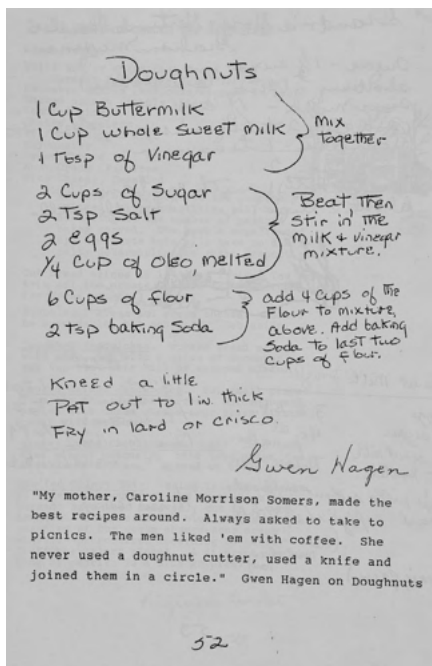 Doughnuts
1 Cup Buttermilk
1 Cup whole sweet milk
1 Tbsp of Vinegar
mix
together
2 Cups of Sugar
2 Tsp Salt
2 eggs
1/4 Cup of Oleo, melted
Beat Then
stir in the
milk + vinegar
mixture.
6 Cups of flour
2 tsp baking Soda
add 4 cups of the
Flour to mixture,
above. Add baking
Soda to last two
Cups of flour.
Kneed a little
PAT out to 1 in. thick
FRY in lard or crisco.
Gwen Hagen
"My mother, Caroline Morrison Somers, made the
best recipes around. Always asked to take to
picnics. The men liked 'em with coffee. She
never used a doughnut cutter, used a knife and
joined them in a circle." Gwen Hagen on Doughnuts
52